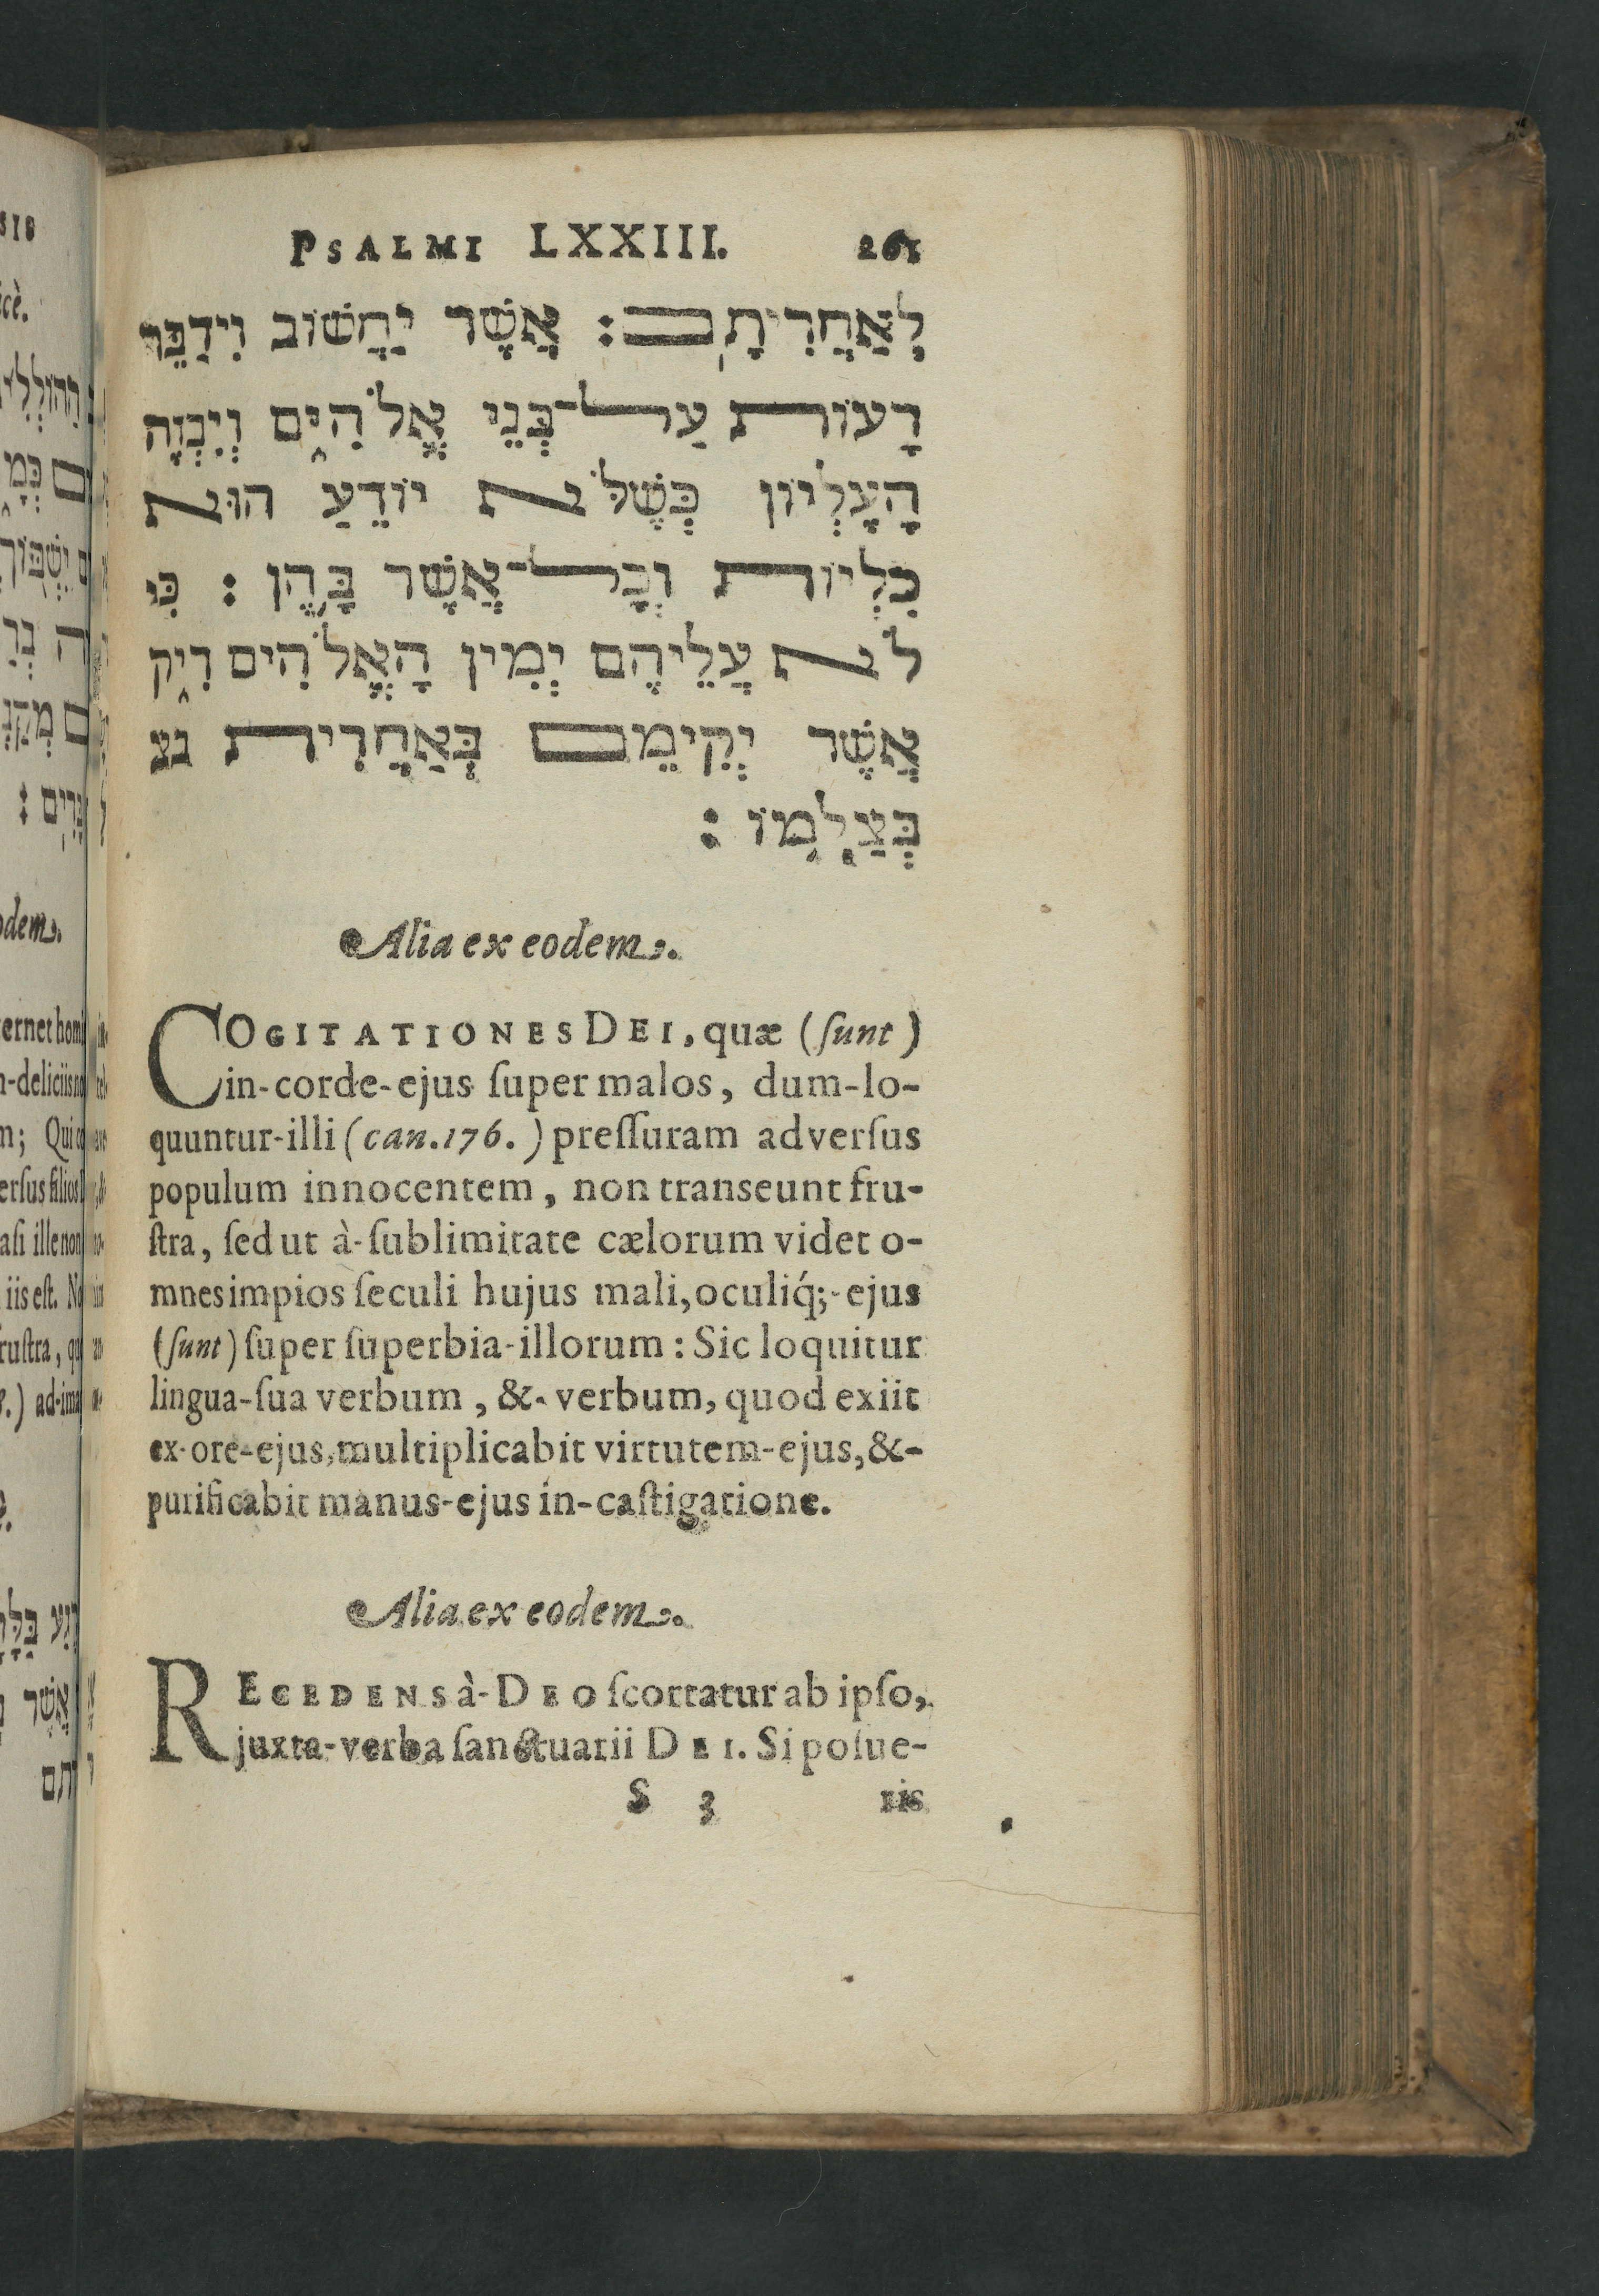 PSALMI LXXIII. 261
לְאַחֲרִיתָם : אֲשֶׁר יַחֲשׁוֹב וִידַבֵּר
דָעוֹת עַל־בְּנֵי אֱלֹהִים וְיִבְזֶה
הָעֶלְיוֹן כְּשֶׁלֹּא יוֹדֵעַ הוּא
כִלְיוֹת וְכָל־אֲשֶׁר בָּהֶן : כִּי
לֹא עֲלֵיהֶם יְמִין הָאֱלֹהִים רִיק
אֲשֶׁר יְקִימֵם בְּאַחֲרִית נצ
בְּצַלְמוֹ :
Alia ex eodem.
COGITATIONES DEI, quæ (ſunt)
in-corde-ejus ſuper malos, dum-lo-
quuntur-illi (can. 176.) preſſuram adverſus
populum innocentem, non transeunt fru-
ſtra, ſed ut à-ſublimitate cælorum videt o-
mnes impios ſeculi hujus mali, oculiq́;-ejus
(ſunt) ſuper ſuperbia-illorum: Sic loquitur
lingua-ſua verbum, &-verbum, quod exiit
ex-ore-ejus, multiplicabit virtutem-ejus, &-
purificabit manus-ejus in-caſtigatione.
Alia ex eodem.
RECEDENS à-DEO ſcortatur ab ipſo,
juxta-verba ſanctuarii DEI. Si poſue-
S 3 ris